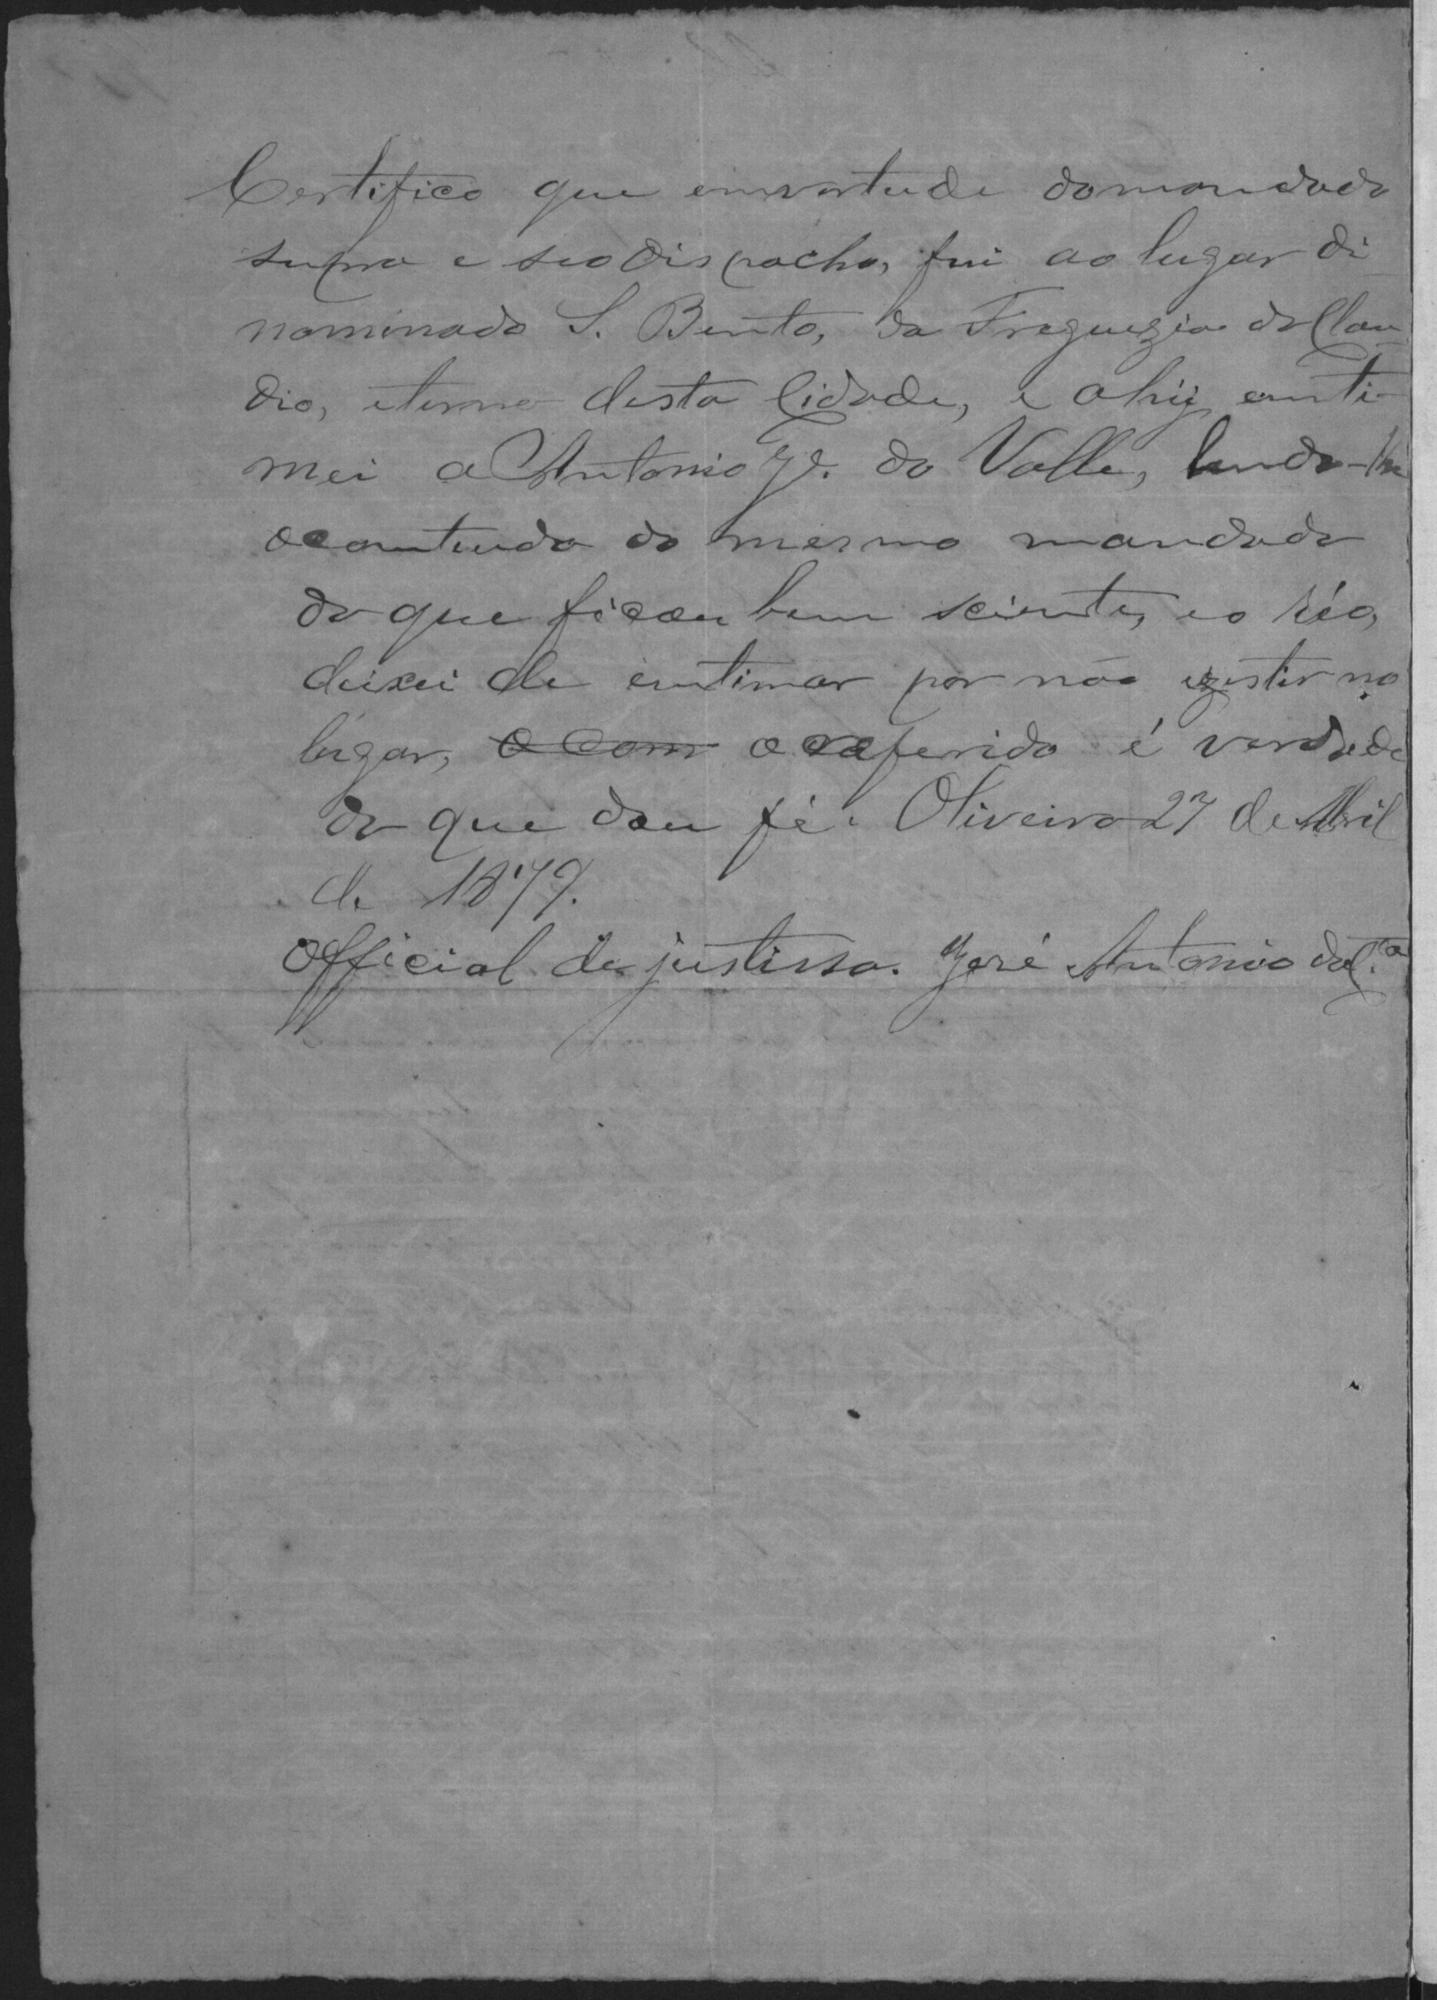 Certifico que emvertude domandado
supra e seo dispacho, fui ao lugar di
nominado S. Bento, da Freguezia do Clau
dio, termo desta Cidade, e ahij, enti-
mei a Antonio Je. do Valle, lendo-lhe
ocontendo do mesmo mandado
do que ficou bem sciente, eo réo,
deixei de entimar por não ezestir no
lugar, o com o referido é verdade
do que dou fé. Oliveira 27 de Abril
de 1879.
Official de justissa. José Antonio da C.ta